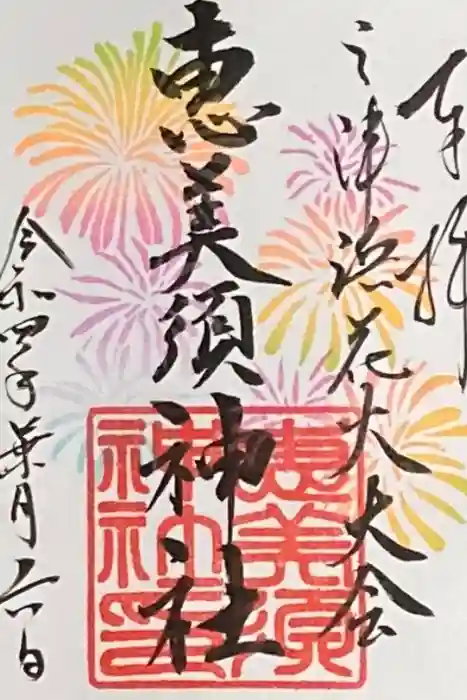 奉拝
三津浜花火大会
恵美須神社
令和四年葉月六日
恵美須
神社印